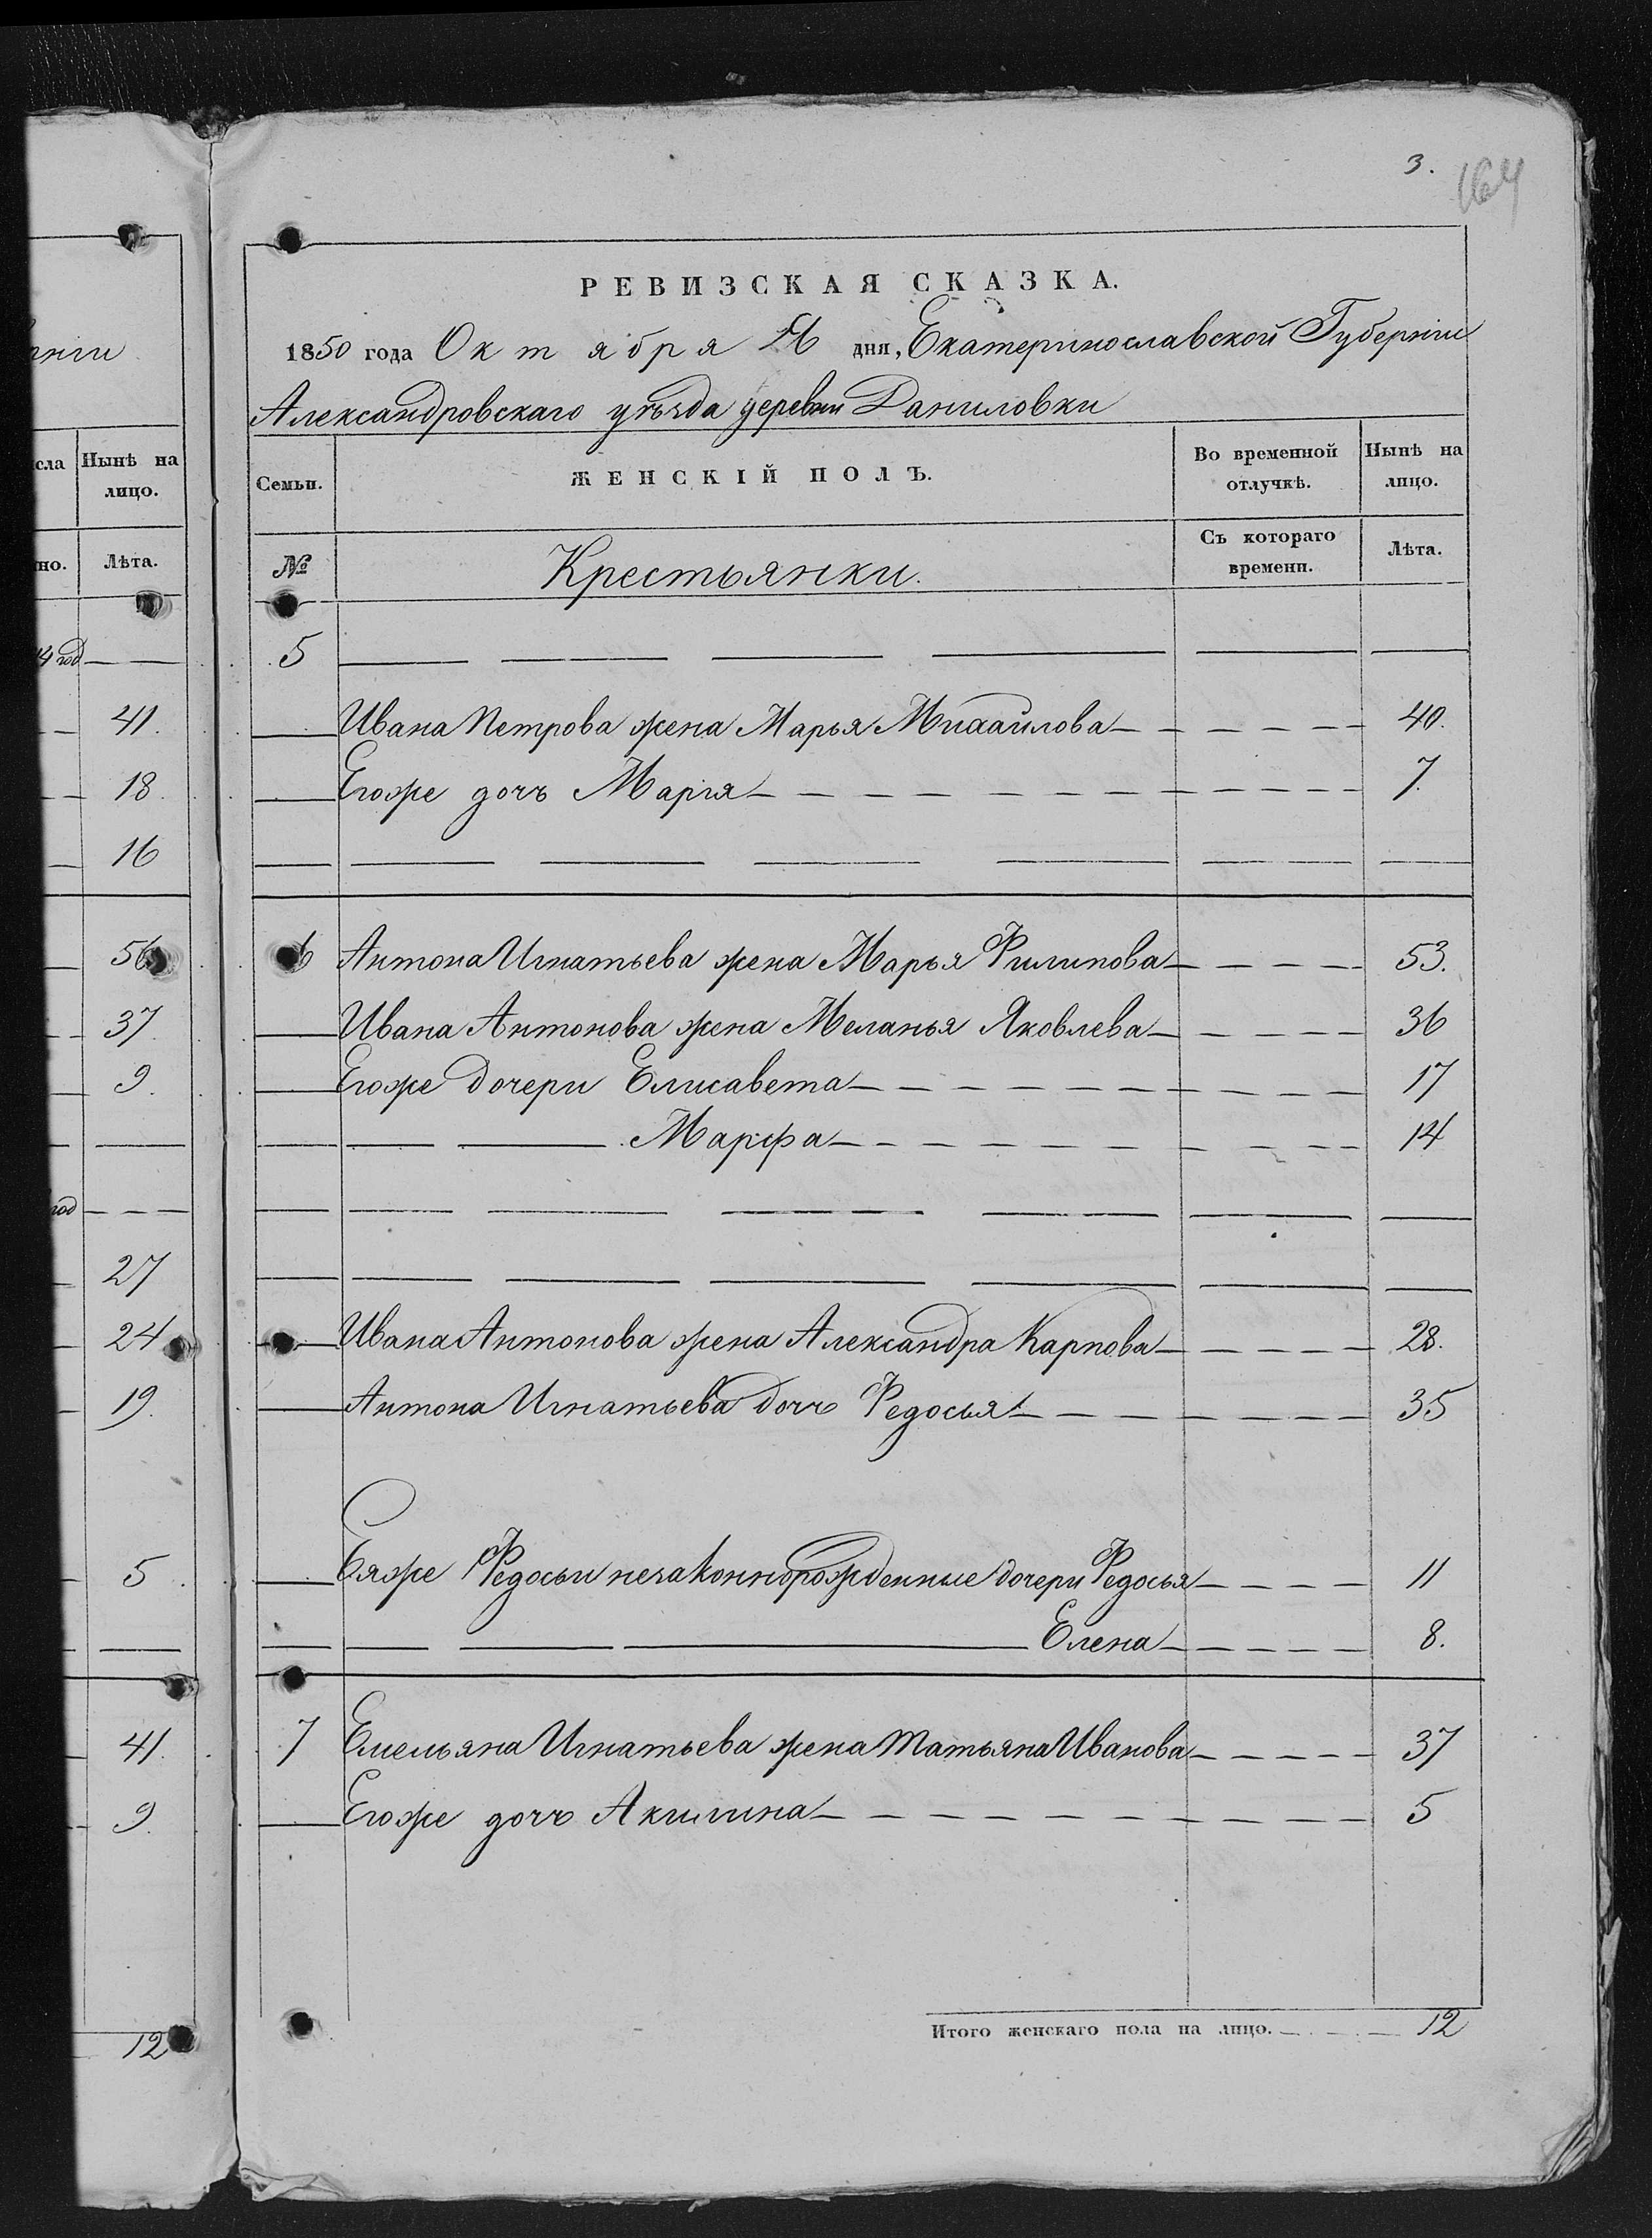 3.
164
РЕВИЗСКАЯ СКАЗКА.
1850 года Октября 26 дня, Екатеринославской Губерніи
Александровскаго уѣзда деревни Даниловки
Семьи. ЖЕНСКІЙ ПОЛЪ. Во временной отлучкѣ. Нынѣ на лицо.
№ Крестьянки. Съ котораго времени. Лѣта.
5
Ивана Петрова жена Марья Михайлова 40.
Егоже дочь Марія 7.
6 Антона Игнатьева жена Марья Филипова 53.
Ивана Антонова жена Меланья Яковлева 36
Егоже дочери Елисавета 17
Марфа 14
Ивана Антонова жена Александра Карпова 28.
Антона Игнатьева дочь Федосья 35
Еяже Федосьи незаконнорожденные дочери Федосья 11
Елена 8.
7 Емельяна Игнатьева жена Татьяна Иванова 37
Егоже дочь Акилина 5
Итого женскаго пола на лицо. 12
рніи
сла Нынѣ на лицо.
но. Лѣта.
4 год
41.
18.
16
56
37
9.
год
27
24
19.
5
41.
9.
12